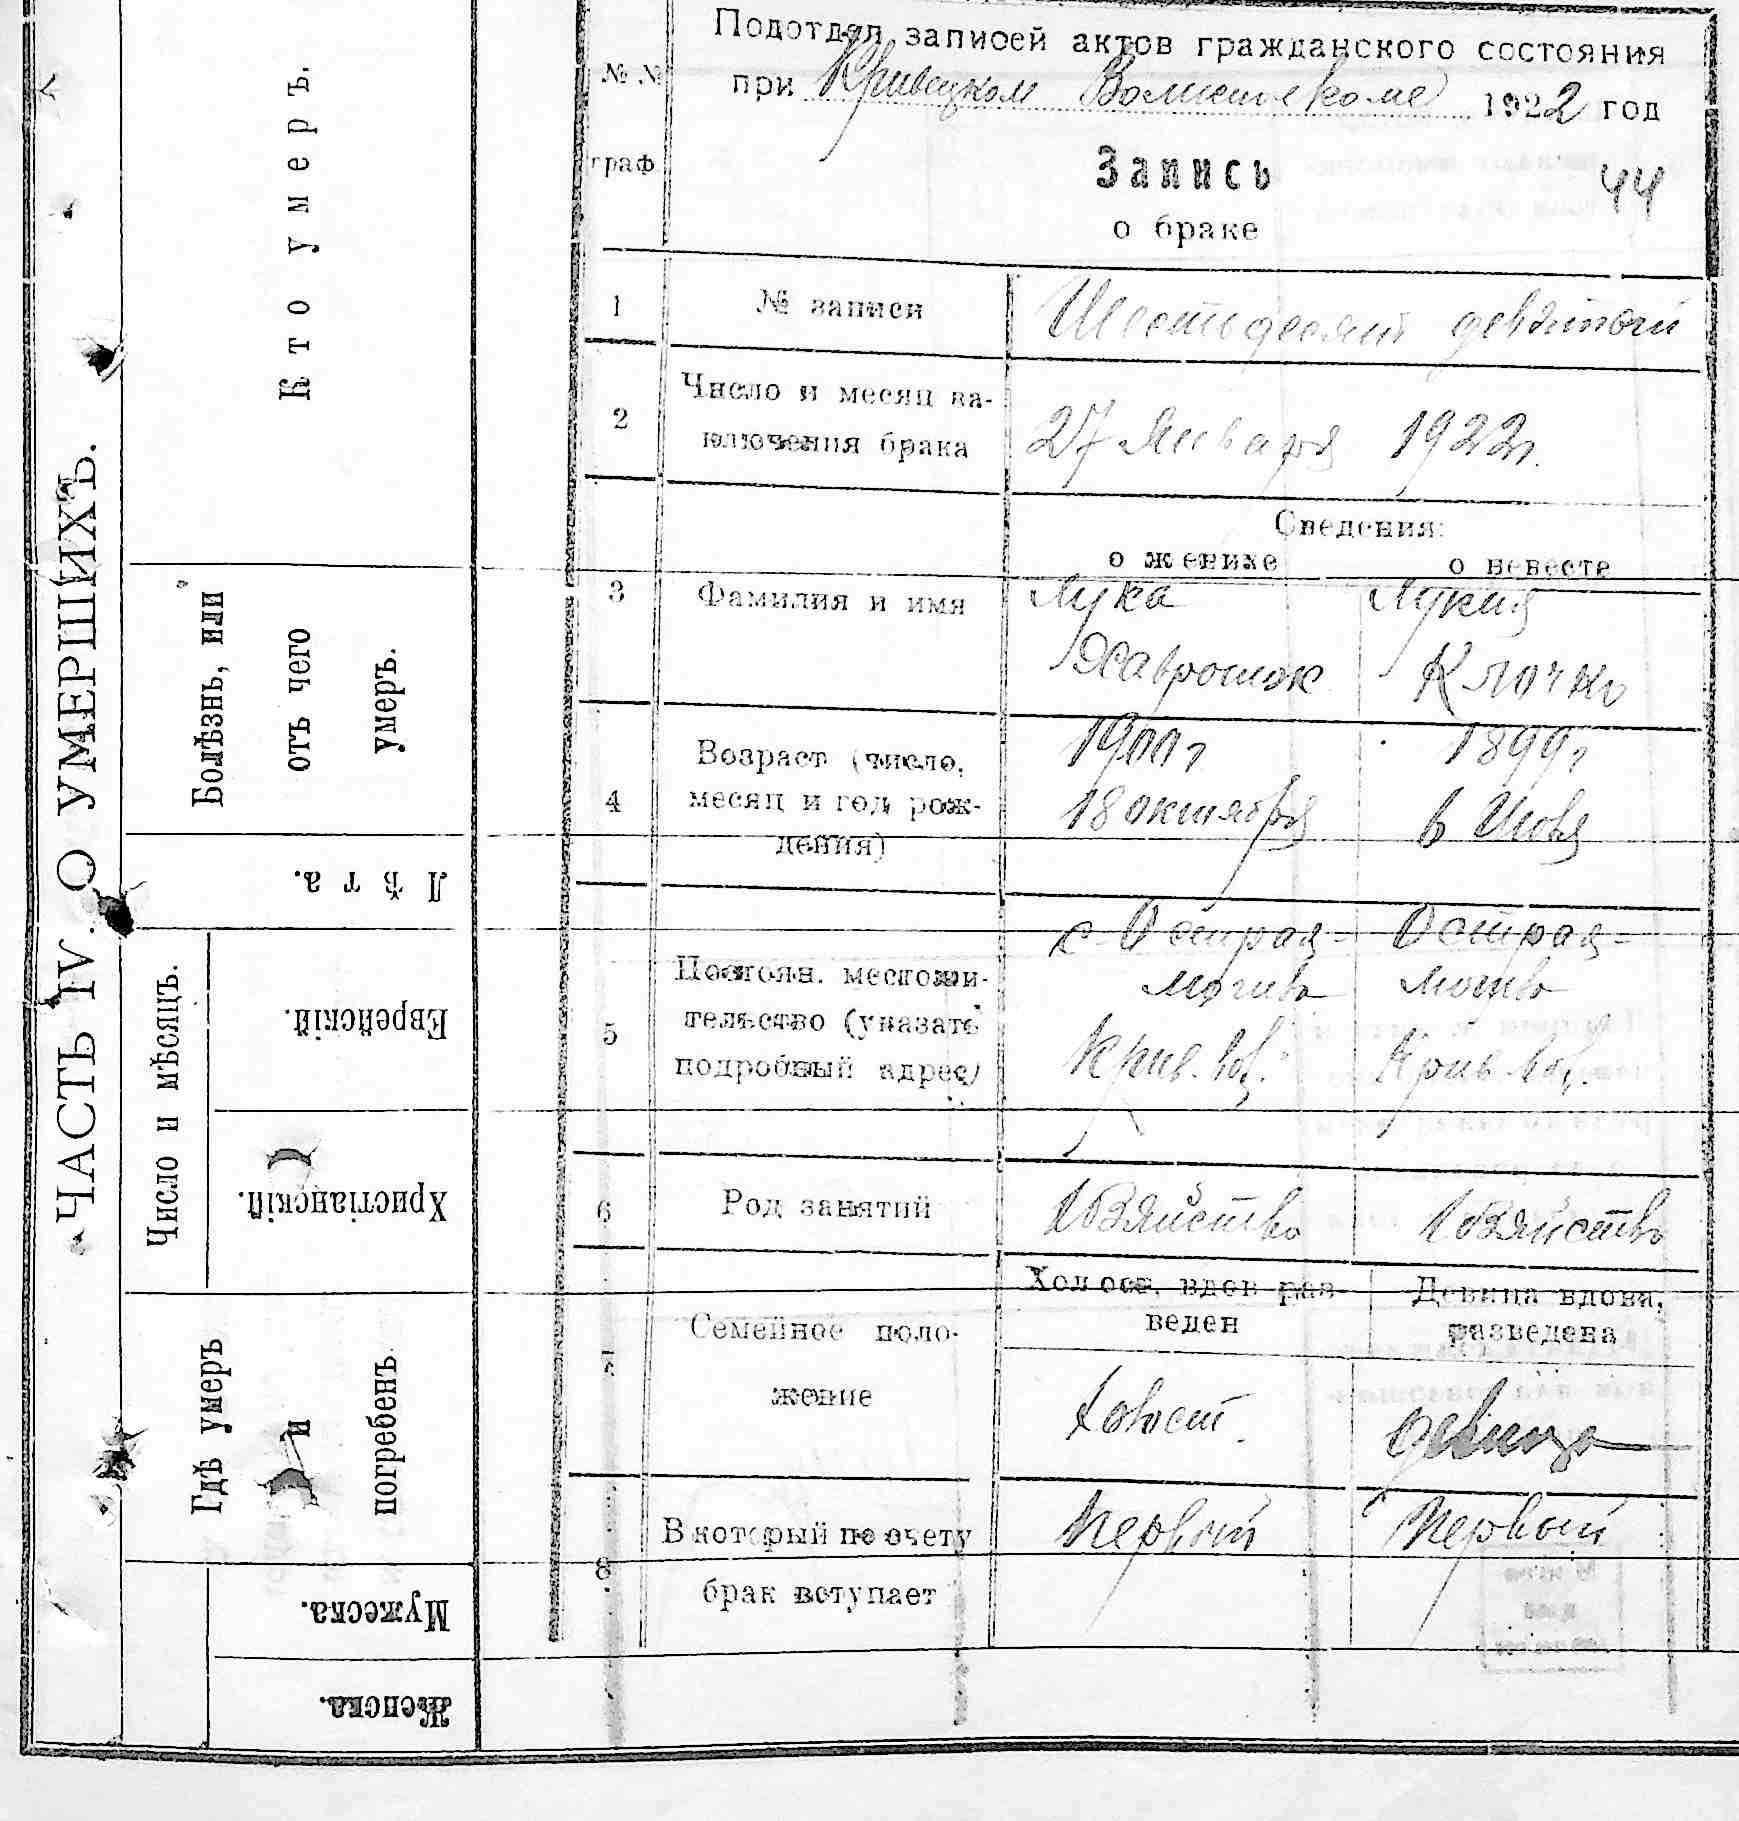 ЧАСТЬ IV. О УМЕРШИХЪ.
Кто умеръ.
Болѣзнь, или
отъ чего
умеръ.
Лѣта.
Число и мѣсяцъ.
Еврейскій.
Христіанскій.
Гдѣ умеръ
и
погребенъ.
Мужеска.
Женска.
№ №
граф
Подотдел записей актов гражданского состояния
при Кривецком Волисполкоме 1922 год
Запись
44
о браке
1 № записи Шестьдесят девятый
2 Число и месяц за-
ключения брака 27 Января 1922г.
Сведения:
о женихе о невесте
3 Фамилия и имя Лука Лукия
Клочко
4 Возраст (число, 1900г 1899г
месяц и год рож- 18 октября в
дения)
с. Острая- Острая-
5 Постоян. местожи- могила могила
тельство (указать
подробный адрес) Крив. вол. Крив. вол.
6 Род занятий Хозяйство Хозяйство
7 Семейное поло-
жение
Холост. вдов раз-
веден
Девица вдова,
разведена
Холост. девица
8 В который по счету
брак вступает Первый Первый